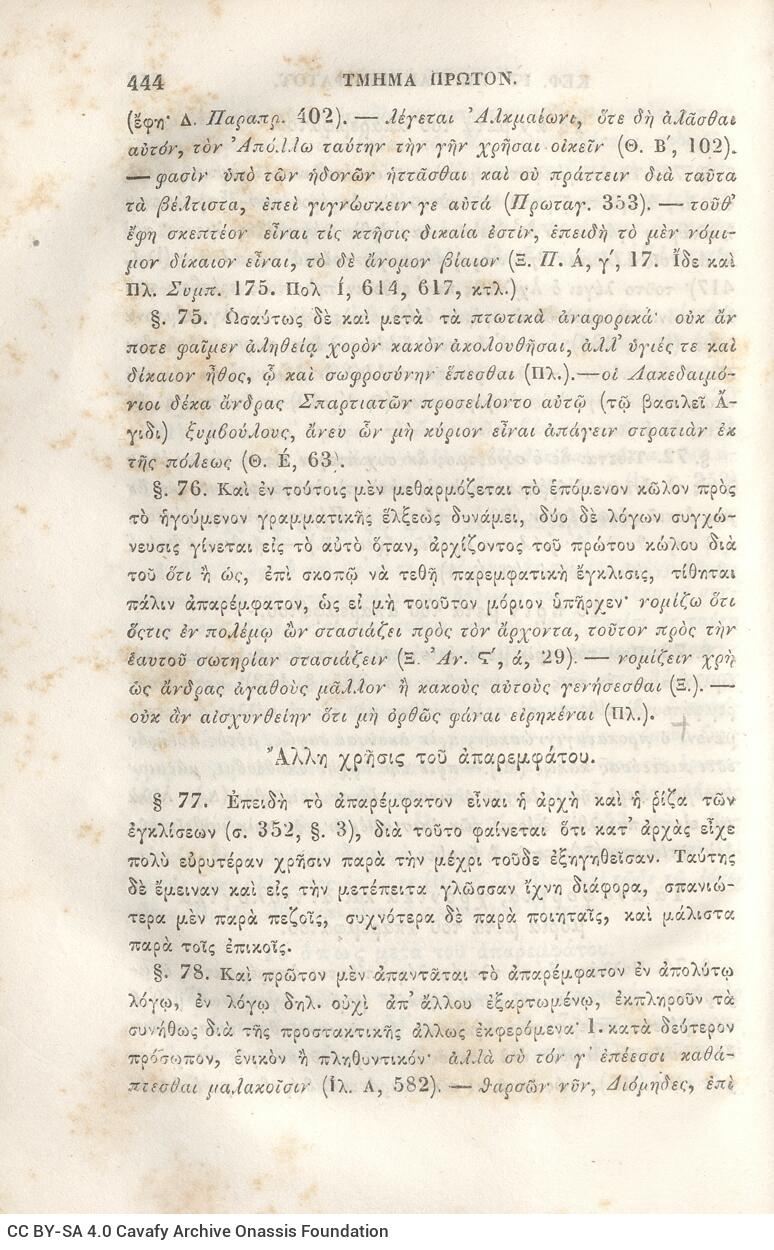 444 ΤΜΗΜΑ ΠΡΩΤΟΝ.
(ἔφη· Δ. Παραπρ. 402). — λέγεται Ἀλκμαίωνι, ὅτε δὴ ἀλᾶσθαι
αὐτόν, τὸν Ἀπόλλω ταύτην τὴν γῆν χρῆσαι οἰκεῖν (Θ. Β΄, 102).
— φασὶν ὑπὸ τῶν ἡδονῶν ἡττᾶσθαι καὶ οὐ πράττειν διὰ ταῦτα
τὰ βέλτιστα, ἐπεὶ γιγνώσκειν γε αὐτά (Πρωταγ. 353). — τοῦθ᾽
ἔφη σκεπτέον εἶναι τίς κτῆσις δικαία ἐστίν, ἐπειδὴ τὸ μὲν νόμι-
μον δίκαιον εἶναι, τὸ δὲ ἄνομον βίαιον (Ξ. Π. Ά, γ΄, 17. Ἴδε καὶ
Πλ. Συμπ. 175. Πολ Ί, 614, 617, κτλ.)
§. 75. Ὡσαύτως δὲ καὶ μετὰ τὰ πτωτικὰ ἀναφορικά· οὐκ ἄν
ποτε φαῖμεν ἀληθείᾳ χορὸν κακὸν ἀκολουθῆσαι, ἀλλ᾽ ὑγιές τε καὶ
δίκαιον ἦθος, ᾧ καὶ σωφροσύνην ἕπεσθαι (Πλ.).—οἱ Λακεδαιμό-
νιοι δέκα ἄνδρας Σπαρτιατῶν προσείλοντο αὐτῷ (τῷ βασιλεῖ Ἄ-
γιδι) ξυμβούλους, ἄνευ ὧν μὴ κύριον εἶναι ἀπάγειν στρατιὰν ἐκ
τῆς πόλεως (Θ. Έ, 63).
§. 76. Καὶ ἐν τούτοις μὲν μεθαρμόζεται τὸ ἑπόμενον κῶλον πρὸς
τὸ ἡγούμενον γραμματικῆς ἕλξεως δυνάμει, δύο δὲ λόγων συγχώ-
νευσις γίνεται εἰς τὸ αὐτὸ ὅταν, ἀρχίζοντος τοῦ πρώτου κώλου διὰ
τοῦ ὅτι ἢ ὡς, ἐπὶ σκοπῷ νὰ τεθῇ παρεμφατικὴ ἔγκλισις, τίθηται
πάλιν ἀπαρέμφατον, ὡς εἰ μὴ τοιοῦτον μόριον ὑπῆρχεν· νομίζω ὅτι
ὅςτις ἐν πολέμῳ ὢν στασιάζει πρὸς τὸν ἄρχοντα, τοῦτον πρὸς τὴν
ἑαυτοῦ σωτηρίαν στασιάζειν (Ξ. Ἀν. Ϛ΄, ά, 29). — νομίζειν χρὴ
ὡς ἄνδρας ἀγαθοὺς μᾶλλον ἢ κακοὺς αὐτοὺς γενήσεσθαι (Ξ.). —
οὐκ ἂν αἰσχυνθείην ὅτι μὴ ὀρθῶς φάναι εἰρηκέναι (Πλ.).
Ἄλλη χρῆσις τοῦ ἀπαρεμφάτου.
§ 77. Ἐπειδὴ τὸ ἀπαρέμφατον εἶναι ἡ ἀρχὴ καὶ ἡ ῥίζα τῶν
ἐγκλίσεων (σ. 352, §. 3), διὰ τοῦτο φαίνεται ὅτι κατ᾽ ἀρχὰς εἶχε
πολὺ εὐρυτέραν χρῆσιν παρὰ τὴν μέχρι τοῦδε ἐξηγηθεῖσαν. Ταύτης
δὲ ἔμειναν καὶ εἰς τὴν μετέπειτα γλῶσσαν ἴχνη διάφορα, σπανιώ-
τερα μὲν παρὰ πεζοῖς, συχνότερα δὲ παρὰ ποιηταῖς, καὶ μάλιστα
παρὰ τοῖς ἐπικοῖς.
§. 78. Καὶ πρῶτον μὲν ἀπαντᾶται τὸ ἀπαρέμφατον ἐν ἀπολύτῳ
λόγῳ, ἐν λόγῳ δηλ. οὐχὶ ἀπ᾽ ἄλλου ἐξαρτωμένῳ, ἐκπληροῦν τὰ
συνήθως διὰ τῆς προστακτικῆς ἄλλως ἐκφερόμενα· 1. κατὰ δεύτερον
πρόσωπον, ἑνικὸν ἢ πληθυντικόν· ἀλλὰ σὺ τόν γ᾽ ἐπέεσσι καθά-
πτεσθαι μαλακοῖσιν (Ἰλ. Α, 582). — θαρσῶν νῦν, Διόμηδες, ἐπὶ
CC BY-SA 4.0 Cavafy Archive Onassis Foundation